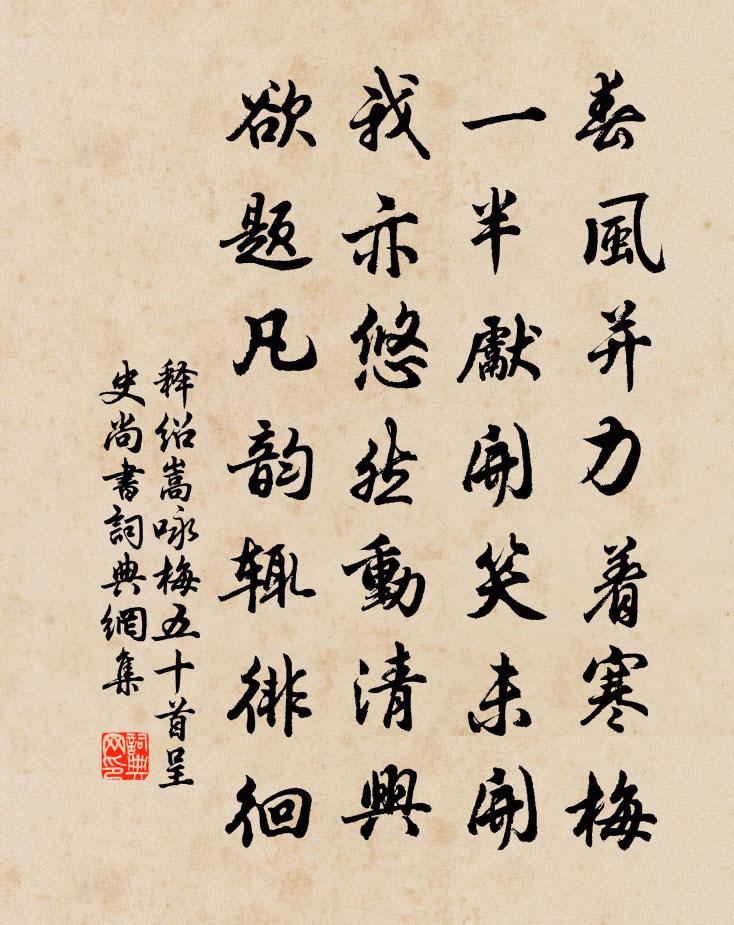 春風并力着寒梅
一半獻開笑未開
我亦悠然動清興
欲题凡韵辄徘徊
释绍嵩咏梅五十首呈
史尚書詞典網集
詞典
网印